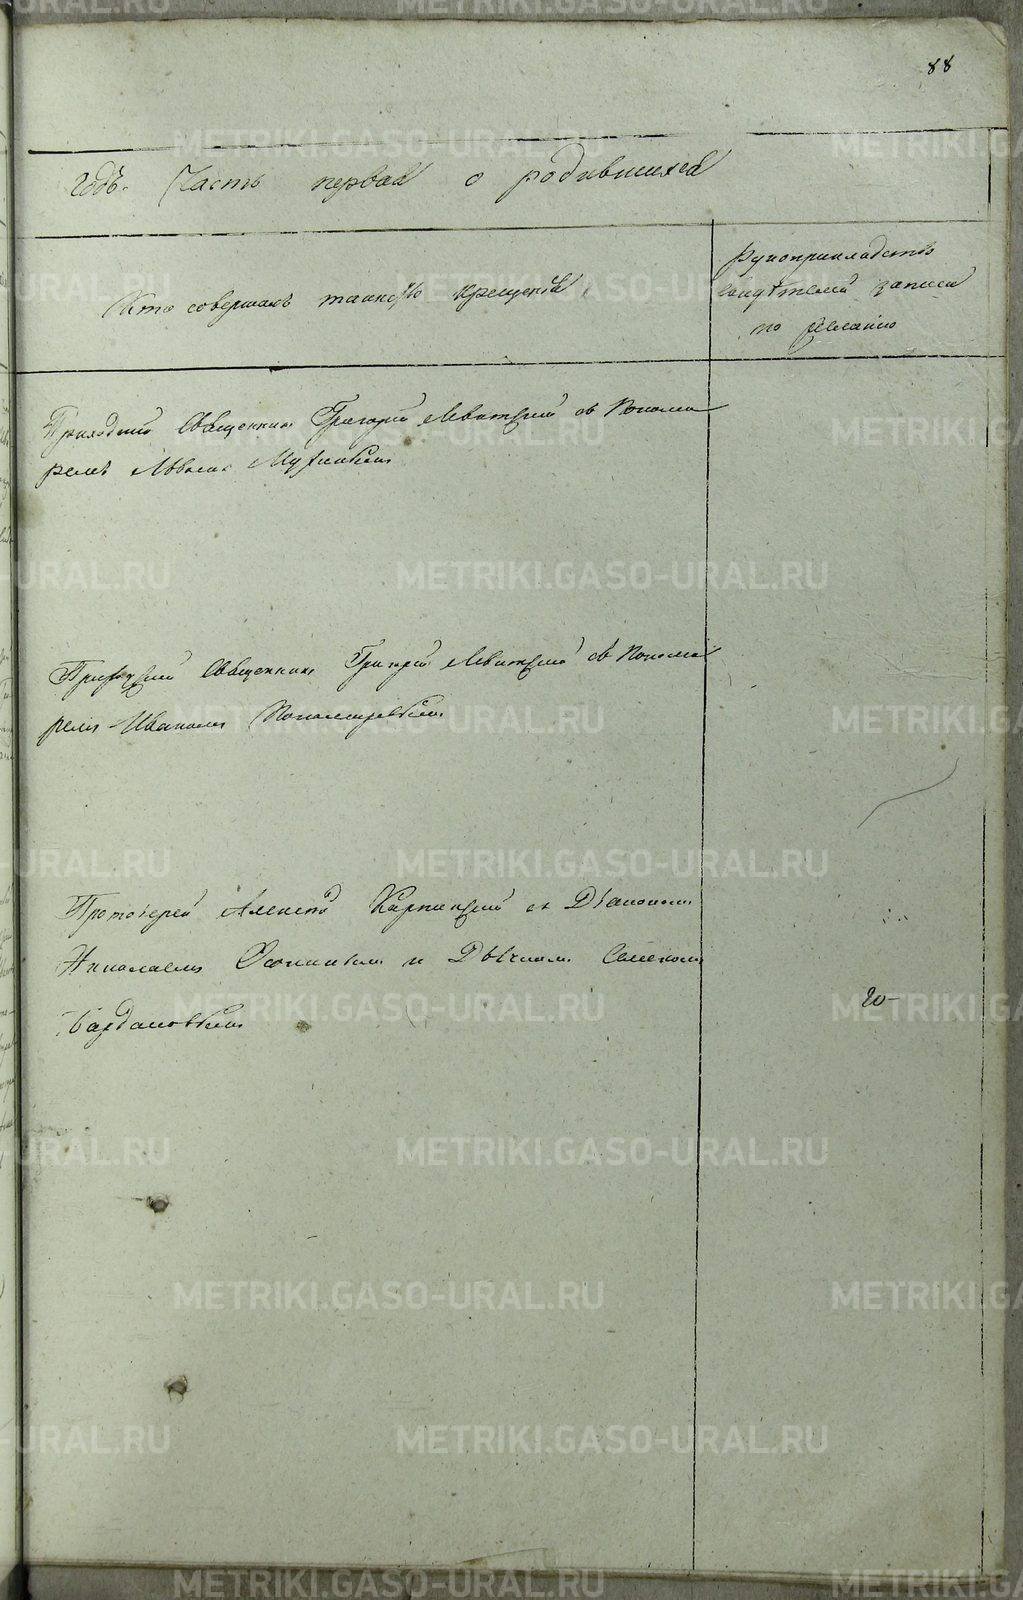 88
годъ. Часть первая о родившихся
Кто совершалъ таинство крещенія
Рукоприкладство
свидѣтелей записи
по желанію
Приходскій Священникъ Григорій Левитскій съ Понома
ремъ
Приходскій Священникъ Григорій Левитскій съ Понома
ремъ Иваномъ Пономаревымъ
Протоіерей Алексѣй Карпинскій съ Діакономъ
Николаемъ и Дьячкомъ Семеномъ
METRIKI.GASO-URAL.RU